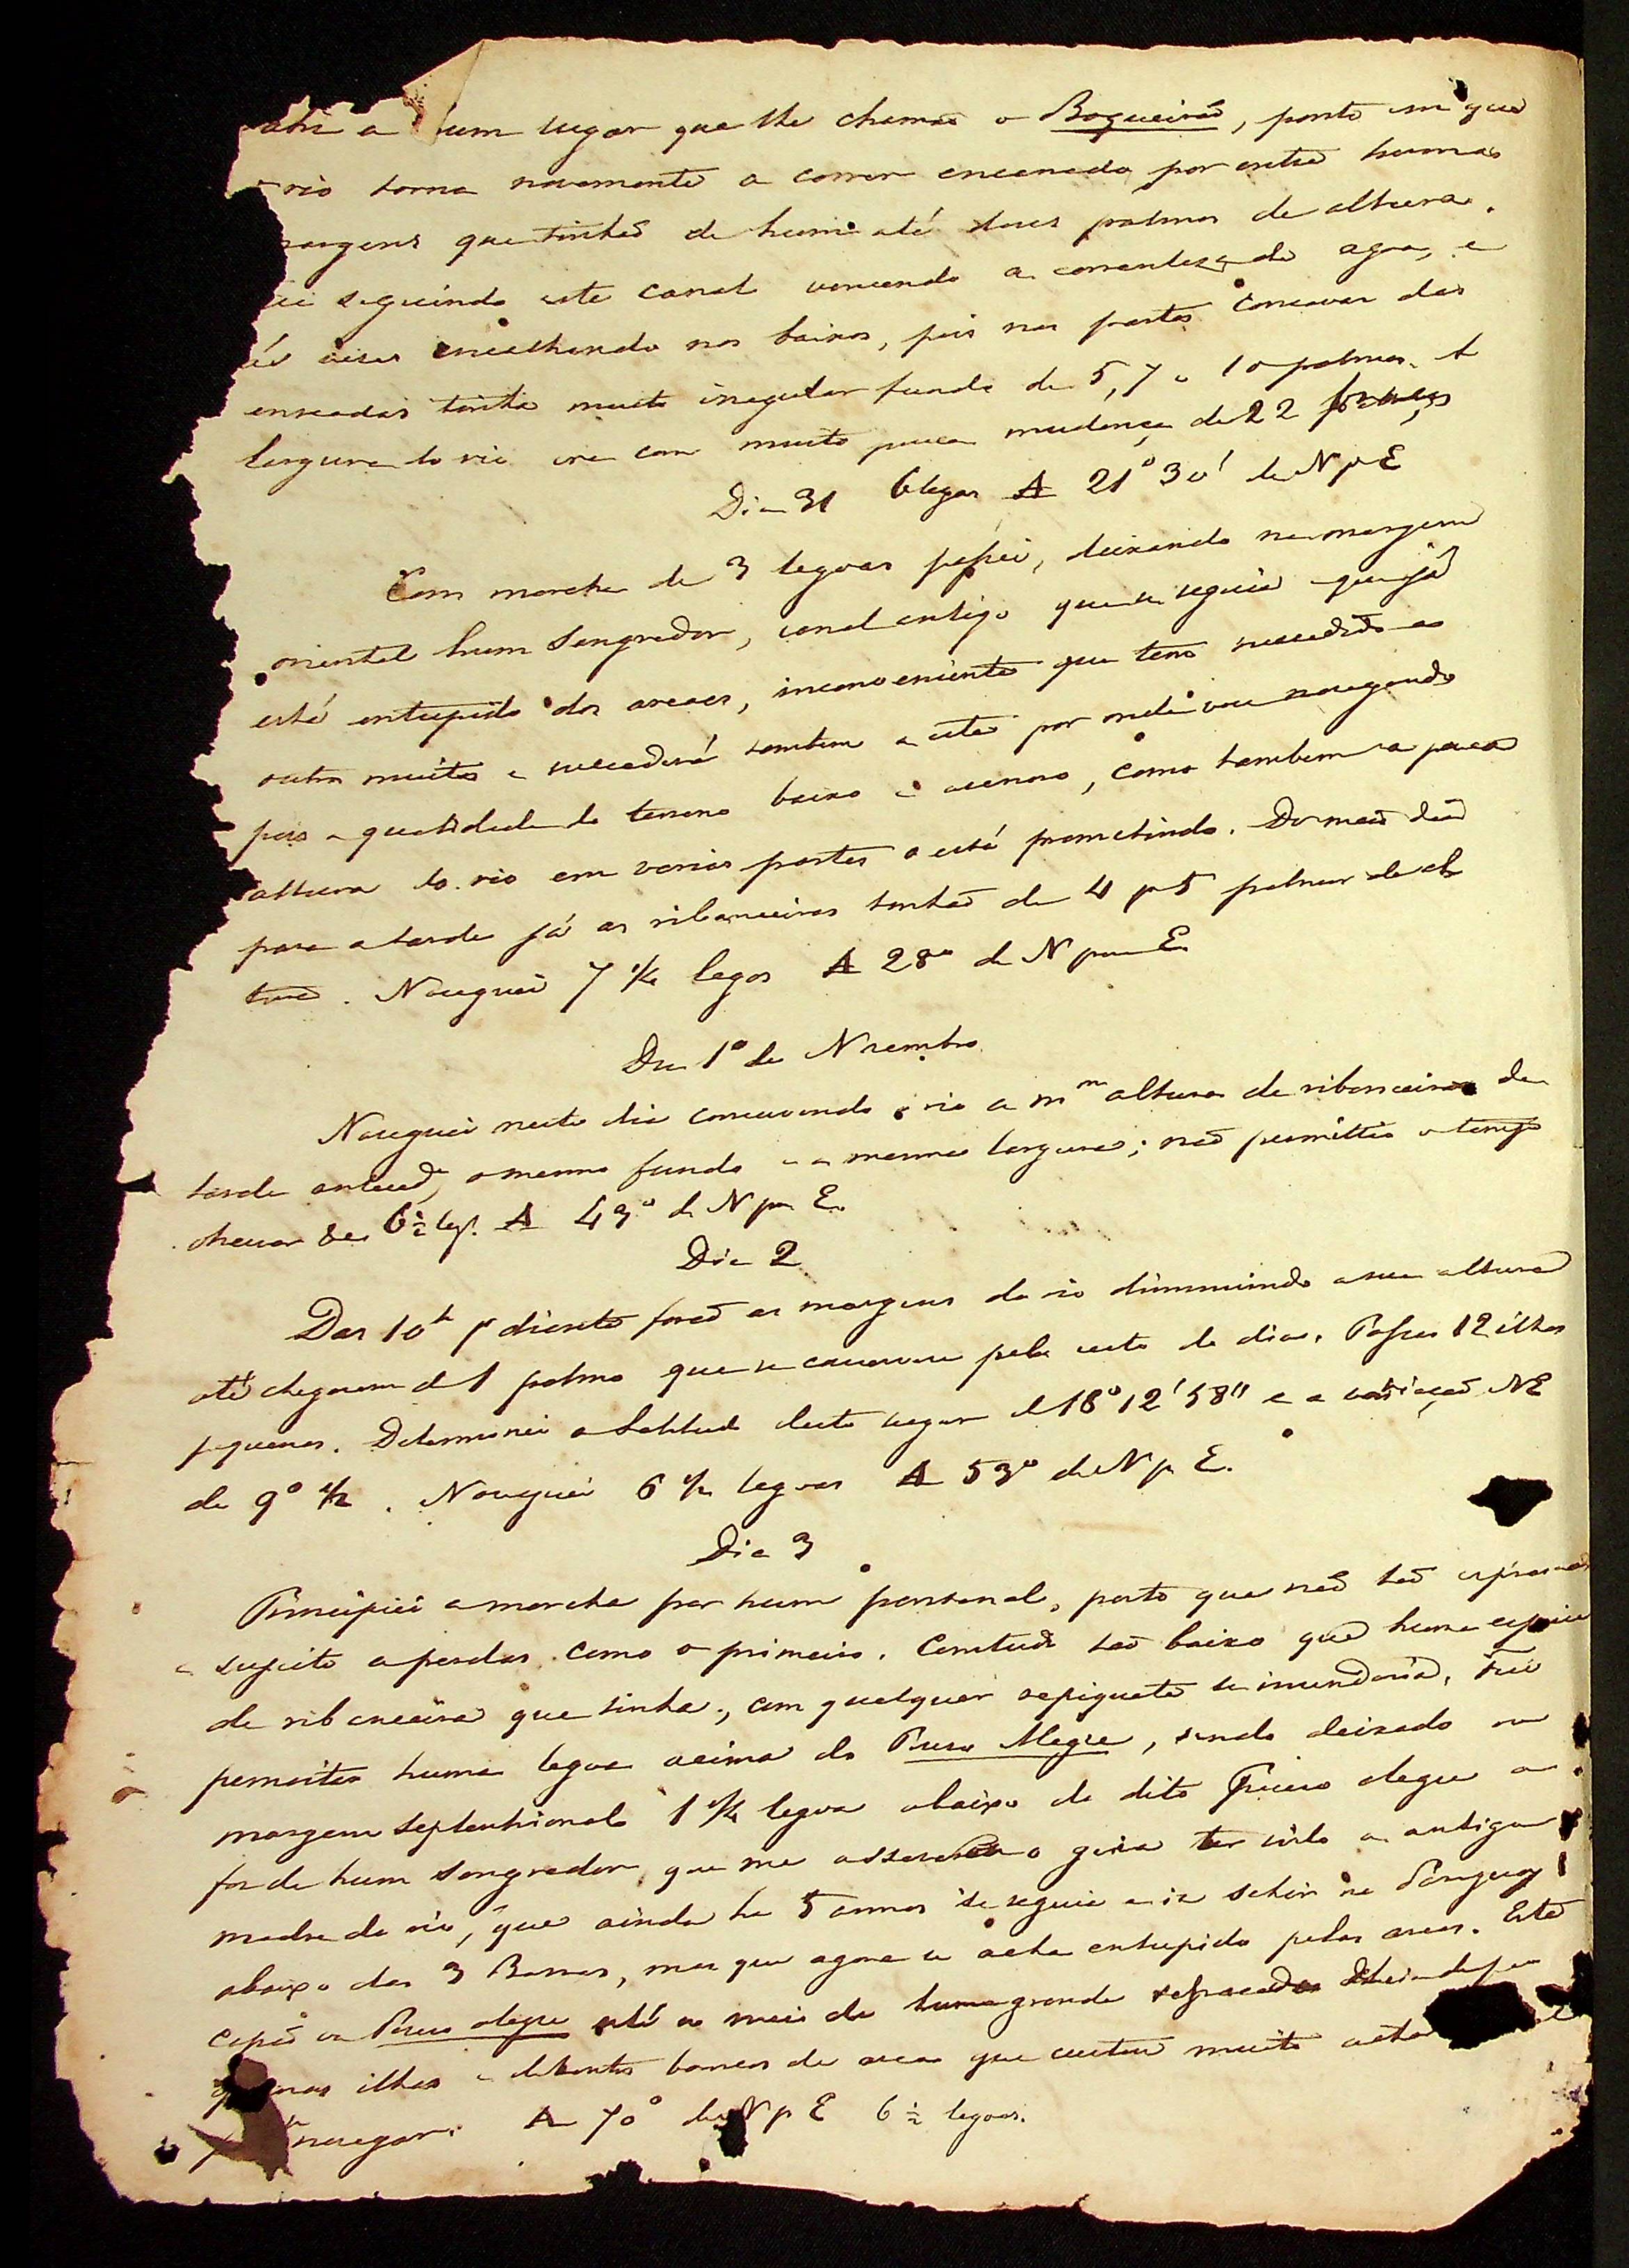 a hum lugar que lhe chamaõ o Boqueiraõ, ponto em que
rio torna novamente a correr encanado por entre humas
margens que tinhaõ de hum até dous palmos de altura.
seguindo este canal vencendo a correnteza da agoa, e
encalhando nos baixos, pois nas partes concavas das
enseadas tinha muito irregular fundo de 5, 7 e 10 palmos. A
largura do rio era com muito pouca mudança de 22 braças
Dia 31 6 legas A 21° 30' de N p E
Com marcha de 3 legoas passei, deixando na margem
oriental hum Sangrador, canal antigo que se seguia que já
está entupido das areas, inconveniente que tem succedido a
outros muitos e succederá tambem a este por onde vou navegando
pois a qualidade do terreno baixo e arenoso, como tambem a pouca
altura do rio em varias partes o está promettindo. Do meio dia
para a tarde já as ribanceiras tinhaõ de 4 p 5 palmos de al
tura. Naveguei 7 1/2 legas A 28° de N por E
Dia 1° de Novembro
Naveguei neste dia conservando o rio a m.ma altura de ribanceiras da
tarde anteced.e o mesmo fundo e a mesma largura; naõ permittio o tempo
observar de 6 1/2 leg. A 43° de N por E.
Dia 2
Das 10h p.r diante foraõ as margens do rio diminuindo a sua altura
até chegarem a 1 palmo que se conservou pelo resto do dia. Passei 12 ilhas
pequenas. Determinei a Latitude deste lugar de 18° 12' 58" e a variaçaõ NE
de 9° 1/2. Naveguei 6 1/2 legoas A 53° de N p E.
Dia 3
Principiei a marcha por hum pantanal, posto que naõ taõ espraiado
e sugeito a perdas como o primeiro. Comtudo taõ baixo que huma especie
de ribanceira que tinha, com qualquer repiquete se inundaria. Fui
pernoitar huma legoa acima do Pouso Alegre, tendo deixado na
margem septentrional 1 1/2 legoa abaixo do dito Pouso alegre a
foz de hum sangrador, que me asseverou o guia ter sido a antiga
madre do rio, que ainda ha 5 annos se seguia e ia sahir no Paraguay
abaixo das 3 Barras, mas que agora se acha entupido pelas areas. Este
Pouso alegre até ao meio de huma grande
ilhas e bancos de area que custou muito
navegar. A 70° de N p E 6 1/2 legoas.